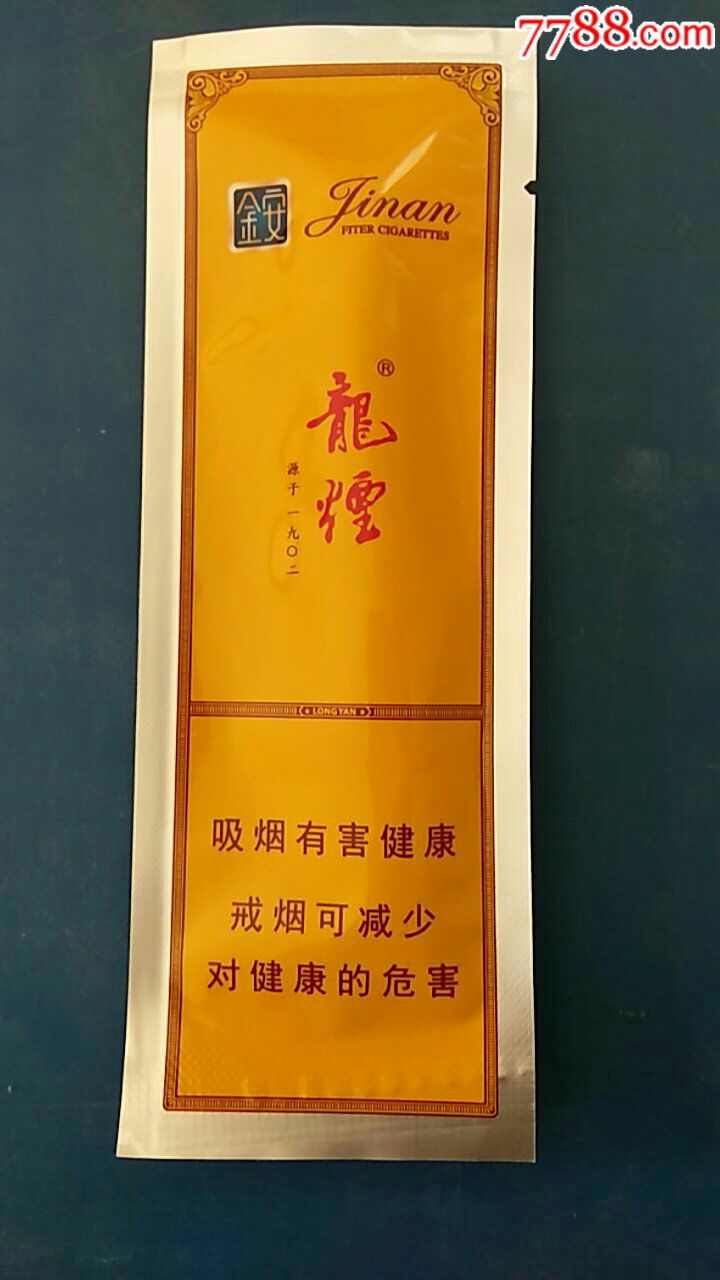 7788.com
金安
Jinan
FITER CIGARETTES
®
龍煙
源于一九〇二
LONGYAN
吸烟有害健康
戒烟可减少
对健康的危害